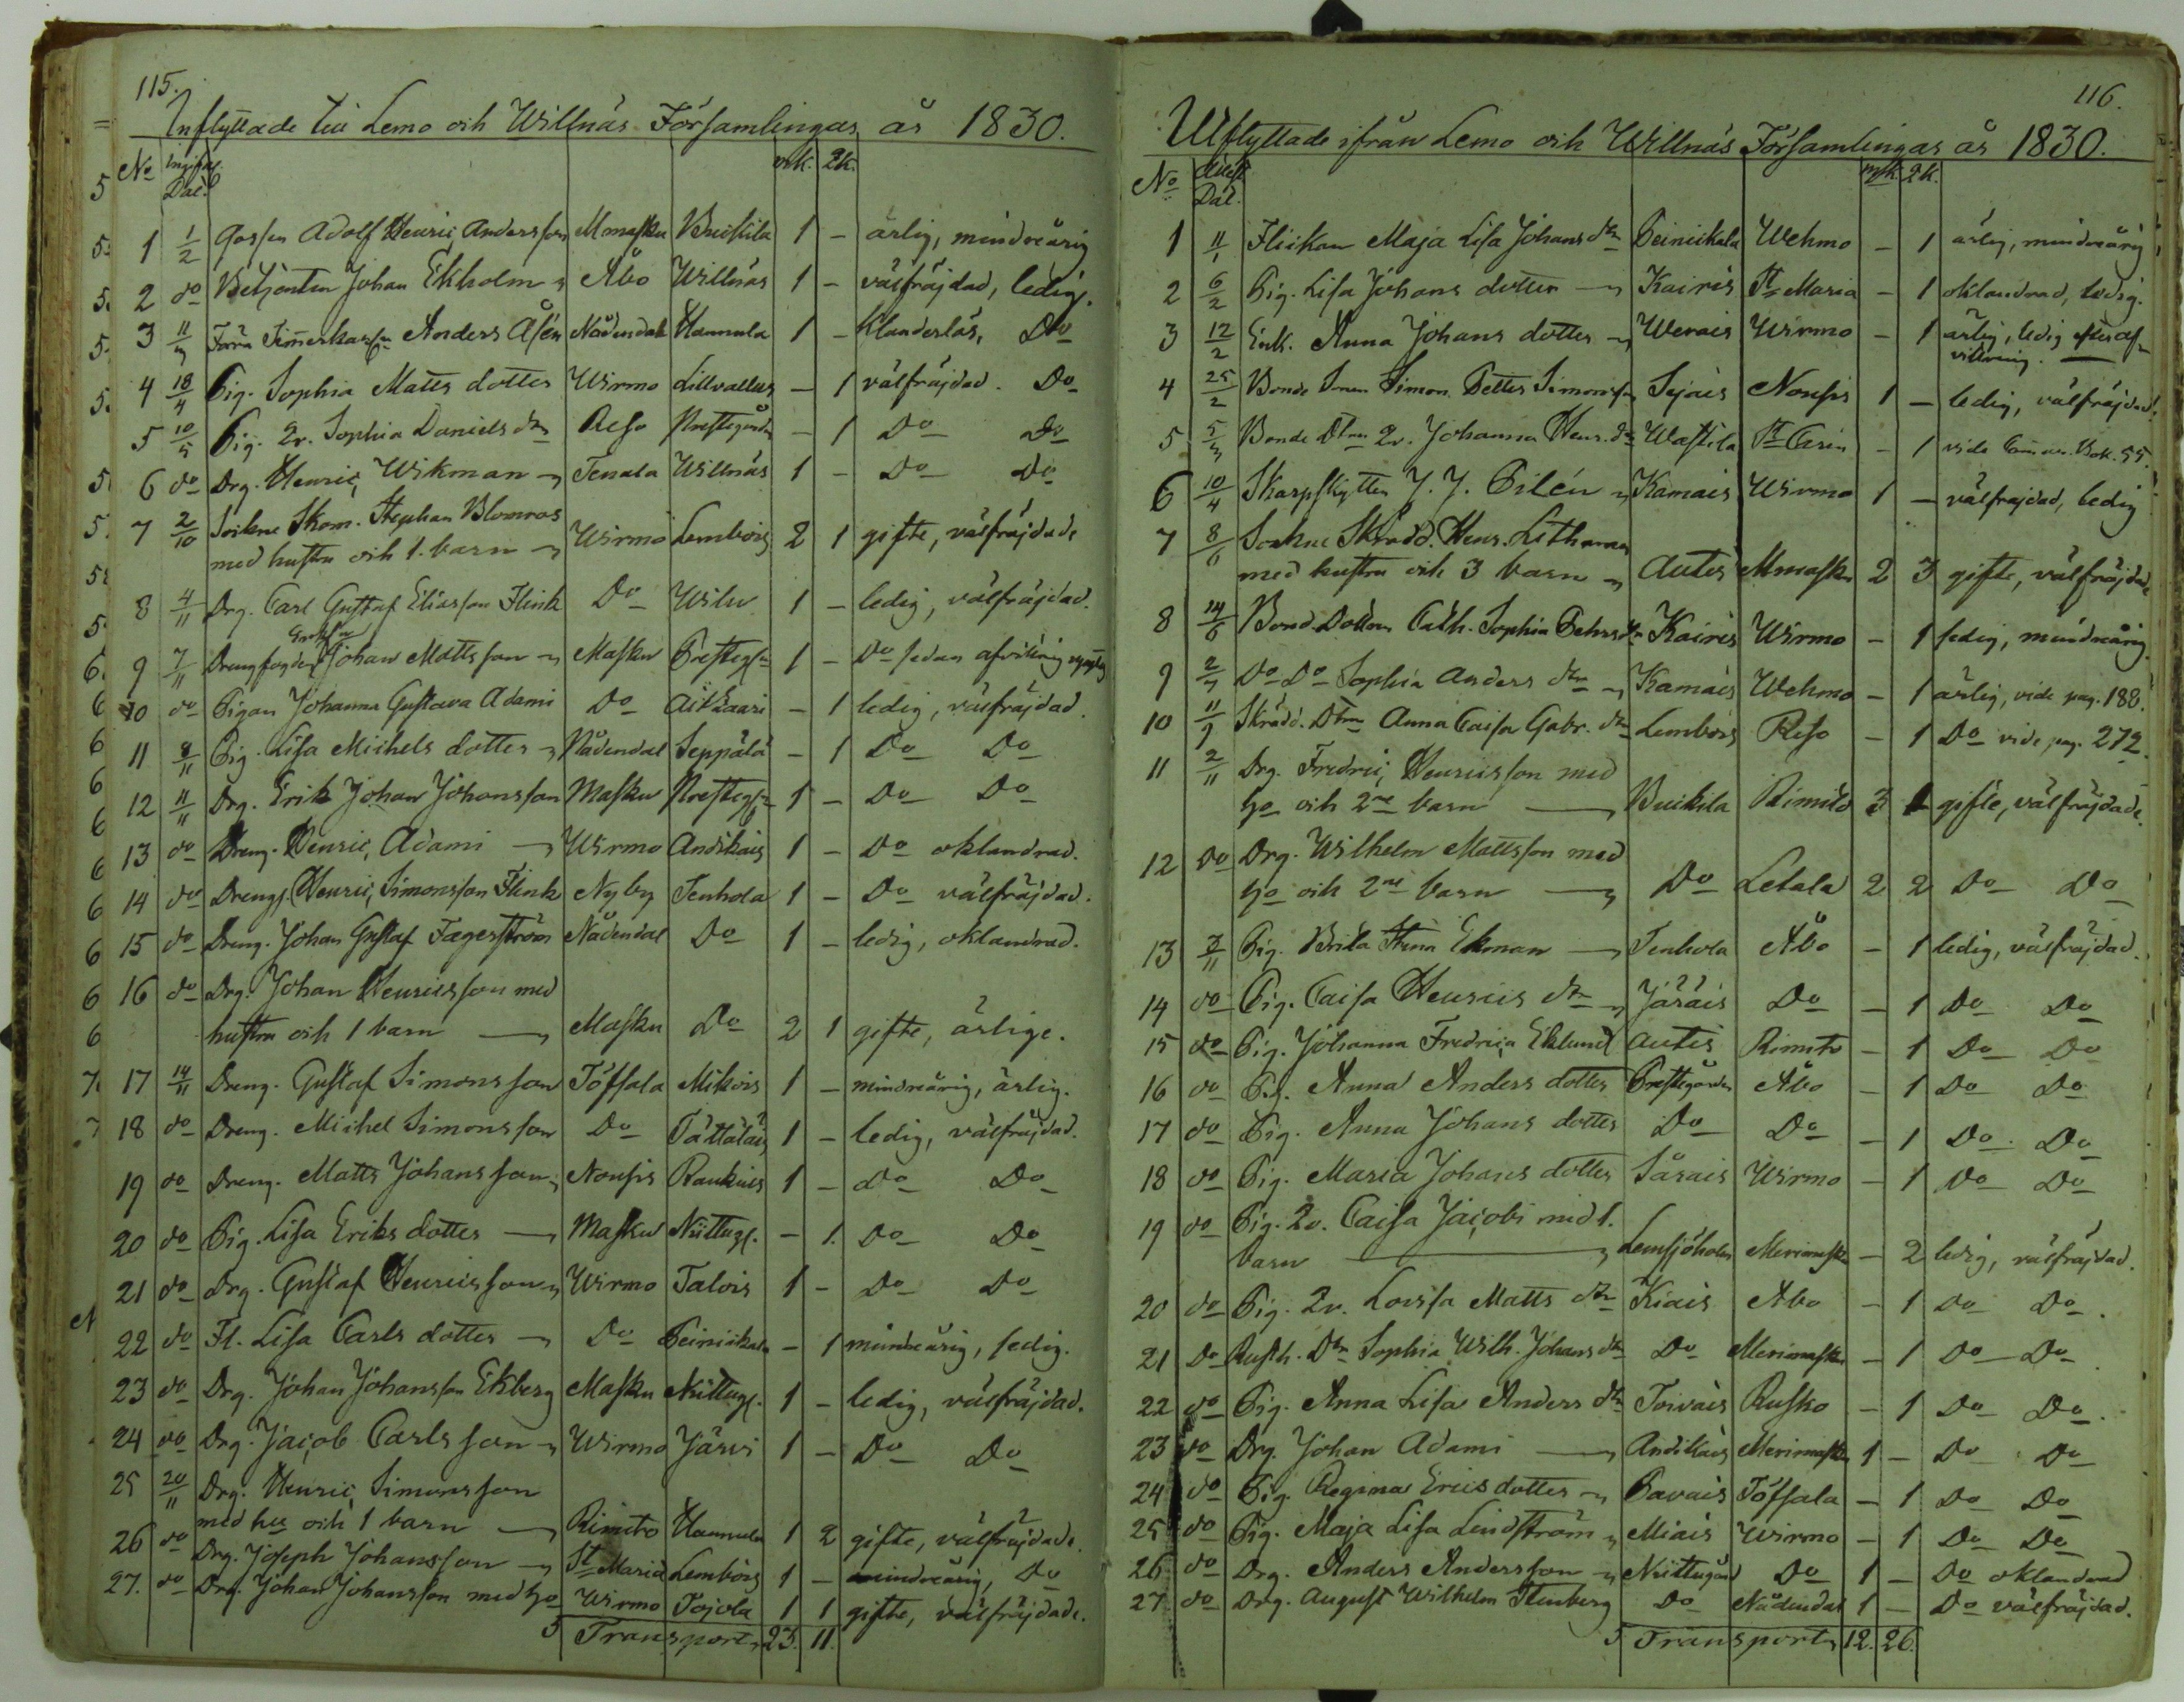 115.
Inflyttade till Lemo och Willnäs Församlingar år 1830.
No Dat. mk. 2k.
1 1/2 Gossen Adolf Henric Andersson Mmasku Buckila 1 – ärlig, mindreårig
2 do Betjenten Johan Ekholm Åbo Willnäs 1 – välfräjdad, ledig.
3 Anders Åsén Nådendal Hannula 1 – klanderlös, Do
4 18/4 Pig. Sophia Matts dotter Wirmo Lillvallus – 1 välfräjdad. Do
5 10/5 Pig. 2v. Sophia Daniels dtr Reso Prestegården – 1 Do Do
6 do Drg. Henric Wikman Tenala Willnäs 1 – Do Do
7 2/10 Sockne Skom. Stephan Blomroos
med hustru och 1. barn Wirmo Lembois 2 1 gifte, välfräjdade
8 4/11 Drg. Carl Gustaf Eliasson Flink Do Wilu 1 – ledig, välfräjdad.
9 7/11 Drengfogden Johan Mattsson Masku Prestegln 1 – Do sedan afvittring
10 do Pigan Johanna Gustava Adami Do Aikkaari – 1 ledig, välfräjdad.
11 8/11 Pig. Lisa Michels dotter Nådendal Seppälä – 1 Do Do
12 11/11 Drg. Erik Johan Johansson Masku Prestegln 1 – Do Do
13 do Dreng. Henric Adami Wirmo Andikais 1 – Do oklandrad.
14 do Dreng. Henric Simonsson Flink Nyby Tenhola 1 – Do välfräjdad.
15 do Dreng. Johan Gustaf Fagerström Nådendal Do 1 – ledig, oklandrad.
16 do Drg. Johan Henricsson med
hustru och 1 barn Masku Do 2 1 gifte, ärlige.
17 14/11 Dreng. Gustaf Simonsson Töfsala Mikois 1 – mindreårig, ärlig.
18 do Dreng. Michel Simonsson Do Tättäläis 1 – ledig, välfräjdad.
19 do Dreng. Matts Johansson Nousis Raukais 1 – Do Do
20 do Pig. Lisa Eriks dotter Masku Niittugl. – 1. Do Do
21 do Drg. Gustaf Henricsson Wirmo Talois 1 – Do Do
22 do Fl. Lisa Carls dotter Do Peinikala – 1 mindreårig, ledig.
23 do Drg. Johan Johansson Ekberg Masku Niittugl. 1 – ledig, välfräjdad.
24 do Drg. Jacob Carlsson Wirmo Järvi 1 – Do Do
25 20/11 Drg. Henric Simonsson
med hu och 1 barn Rimito Hannula 1 2 gifte, välfräjdade.
26 do Drg. Joseph Johansson St Maria Lembois 1 – mindreårig, Do
27. do Drg. Johan Johansson med ho Wirmo Tojola 1 1 gifte, välfräjdade.
Transport 23. 11.
116.
Utflyttade ifrån Lemo och Willnäs Församlingar år 1830.
No Dat. mk. 2k.
1 11/1 Flickan Maja Lisa Johans dtr Peinikala Wehmo – 1 ärlig, mindreårig
2 6/2 Pig. Lisa Johans dotter Kairis St Maria – 1 oklandrad, ledig.
3 12/2 Enk. Anna Johans dotter Werais Wirmo – 1 ärlig, ledig efter af-
vittring.
4 25/2 Bonde Sonen Simon Petter Simonsson Sejais Nousis 1 – ledig, välfräjdad.
5 Bonde Dtren 2v. Johanna Henr. dtr Wastila St Carin – 1 vide Com. Bok. 55.
6 10/4 Skarpskytten J. J. Pilén Kamais Wirmo 1 – välfräjdad, ledig
7 8/6 Sockne Skrädd. Henr. Lithman
med hustru och 3 barn Autis Mmasku 2 3 gifte, välfräjdade
8 14/6 Bond. Dottren Cath. Sophia Pehrsdtr Kairis Wirmo – 1 ledig, mindreårig.
9 2/7 Do Do Sophia Anders dtr Kamais Wehmo – 1 ärlig, vide pag. 188.
10 11/9 Skrädd. Dtren Anna Caisa Gabr. dtr Lembois Reso – 1 Do vide pag. 272.
11 2/11 Drg. Fredric Henricsson med
ho och 2ne barn Buikila Rimito 3 1 gifte, välfräjdade.
12 Do Drg. Wilhelm Mattsson med
ho och 2ne barn Do Letala 2 2 Do Do
13 7/11 Pig. Brita Stina Ekman Tenhola Åbo – 1 ledig, välfräjdad.
14 do Pig. Caisa Henrics dtr Järäis Do – 1 Do Do
15 do Pig. Johanna Fredrica Eklund Autis Rimito – 1 Do Do
16 do Pig. Anna Anders dotter Prestegården Åbo – 1 Do Do
17 do Pig. Anna Johans dotter Do Do – 1 Do Do
18 do Pig. Maria Johans dotter Särais Wirmo – 1 Do Do
19 do Pig. 2v. Caisa Jacobi med 1.
barn Lemsjöholm Merimasku – 2 ledig, välfräjdad.
20 do Pig. 2v. Lovisa Matts dtr Kiais Åbo – 1 Do Do.
21 Do Rusth. Dtr Sophia Wilh. Johans dtr Do Merimasku – 1 Do Do
22 do Pig. Anna Lisa Anders dtr Toivais Rusko – 1 Do Do.
23 do Drg. Johan Adami Andikais Merimasku 1 – Do Do
24 do Pig. Regina Erics dotter Pavais Töfsala – 1 Do Do
25 do Pig. Maja Lisa Lindström Miais Wirmo – 1 Do Do
26 do Drg. Anders Andersson Niittugård Do 1 – Do oklandrad
27 do Drg. August Wilhelm Stenberg Do Nådendal 1 – Do välfräjdad.
Transport 12. 26.